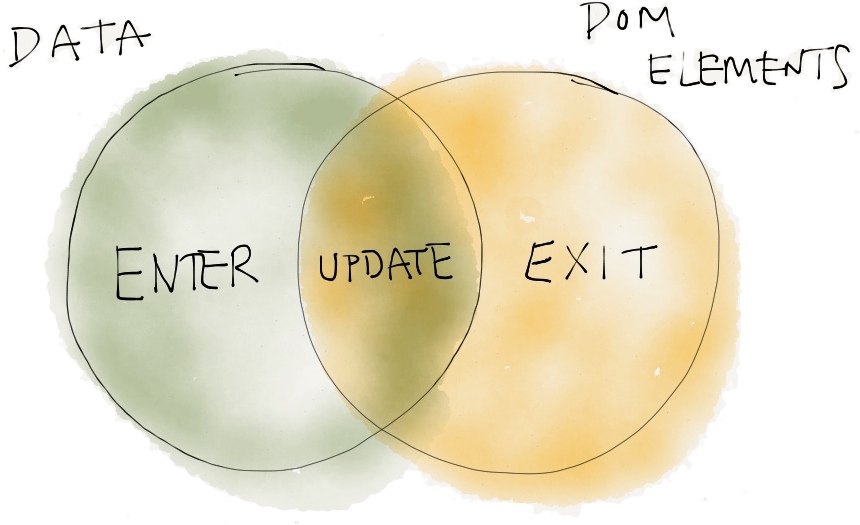 DATA
DOM
ELEMENTS
ENTER
UPDATE
EXIT